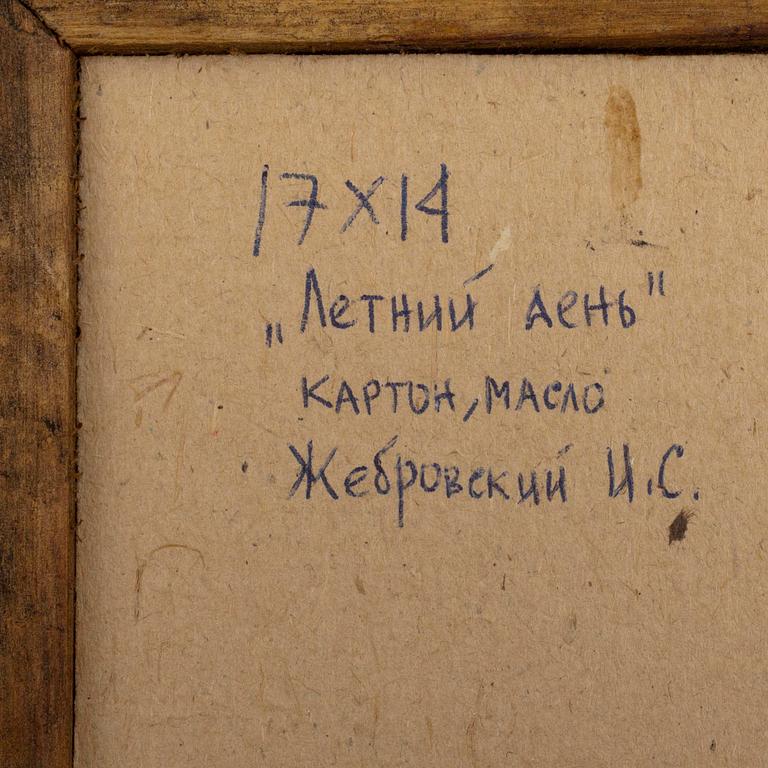 17х14
„Летний день"
картон, масло
Жебровский И.С.